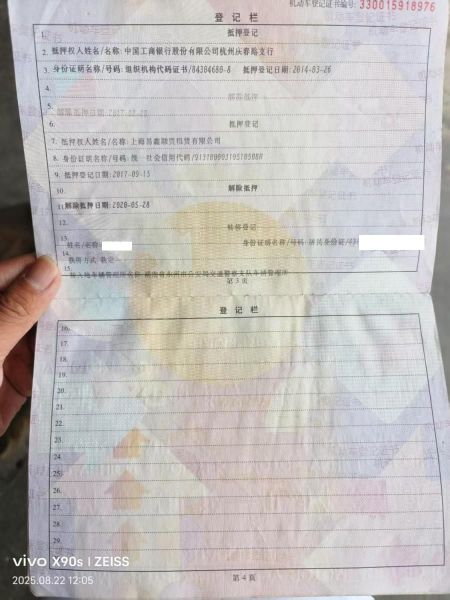 机动车登记证书编号: 330015918976
登记栏
1. 抵押登记
2. 抵押权人姓名/名称: 中国工商银行股份有限公司杭州庆春路支行
3. 身份证明名称/号码: 组织机构代码证书/84304680-8 抵押登记日期: 2014-03-26
4. 解除抵押
5. 解除抵押日期: 2017-02-28
6. 抵押登记
7. 抵押权人姓名/名称: 上海易鑫融资租赁有限公司
8. 身份证明名称/号码: 统一社会信用代码/
9. 抵押登记日期: 2017-09-15
10. 解除抵押
11. 解除抵押日期: 2020-05-28
12. 转移登记
13. 姓名/名称: 身份证明名称/号码: 居民身份证/
14. 获得方式:
15. 转入地车辆管理所名称: 湖南省永州市公安局交通警察支队车辆管理所
第 3 页
登记栏
16.
17.
18.
19.
20.
21.
22.
23.
24.
25.
26.
27.
28.
29.
第 4 页
vivo X90s | ZEISS
2025.08.22 12:05